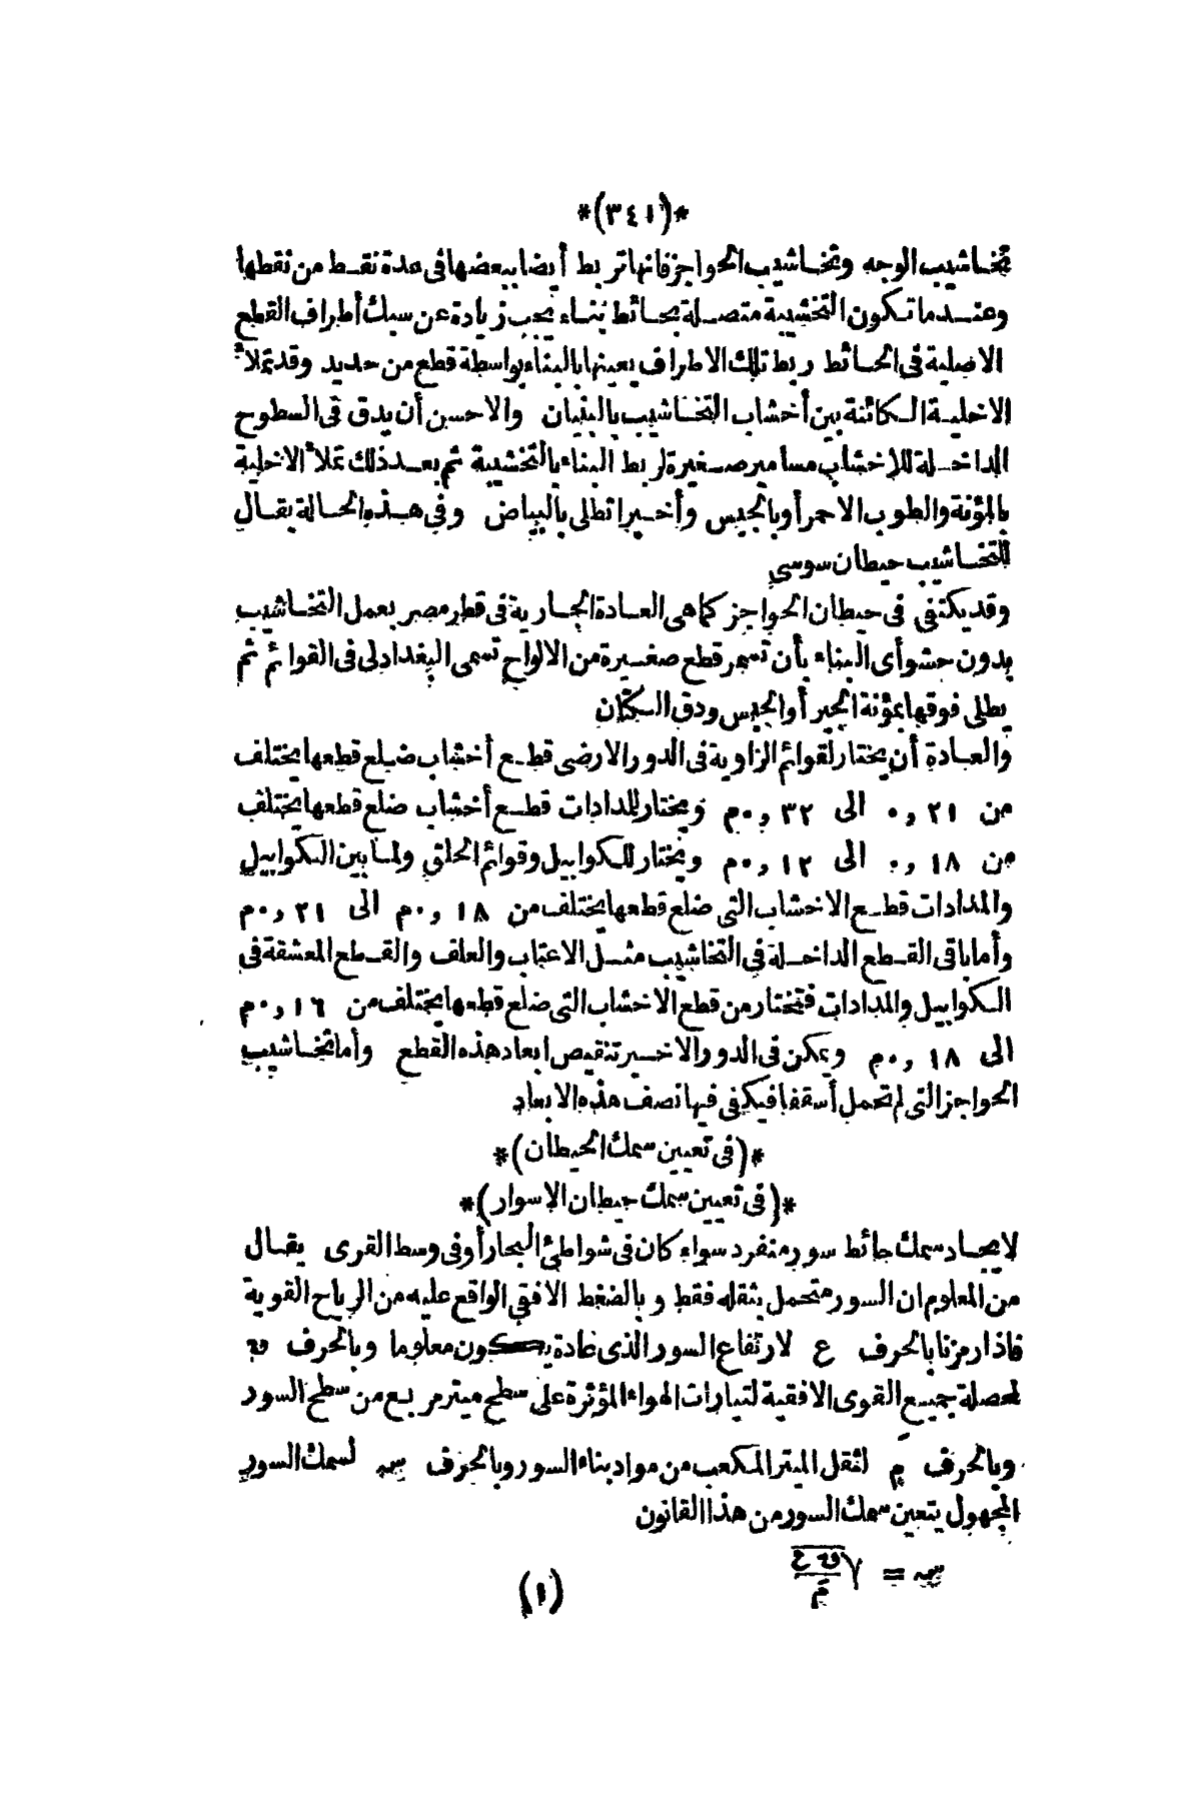 *(٣٤١)*
تخاشيب الوجه وتخاشيب الحواجز فانها تربط أيضا ببعضها فى عدة نقط من نقطها
وعندما تكون التخشيبة متصلة بحائط بناء يجب زيادة عن سبك أطراف القطع
الاصلية فى الحائط ربط تلك الاطراف بعينها بالبناء بواسطة قطع من حديد وقد تملأ
الاخلية الكائنة بين أخشاب التخاشيب بالبنيان والاحسن أن يدق فى السطوح
الداخلة للاخشاب مسامير صغيرة لربط البناء بالتخشيبة ثم بعد ذلك تملأ الاخلية
بالمؤنة والطوب الاحمر أو بالجبس وأخيرا تطلى بالبياض وفى هذه الحالة يقال
للتخاشيب حيطان سوسى
وقد يكتفى فى حيطان الحواجز كما هى العادة الجارية فى قطر مصر بعمل التخاشيب
بدون حشو أى البناء بأن تسمر قطع صغيرة من الالواح تسمى البغدادلى فى القوائم ثم
يطلى فوقها بمؤنة الجير أو الجبس ودق الكتان
والعادة أن يختار لقوائم الزاوية فى الدور الارضى قطع أخشاب ضلع قطعها يختلف
من ٢١ ,٠ الى ٣٢ ,٠م ويختار للمدادات قطع أخشاب ضلع قطعها يختلف
من ١٨ ,٠ الى ١٢ ,٠م ويختار للكوابيل وقوائم الحلق ولما بين الكوابيل
والمدادات قطع الاخشاب التى ضلع قطعها يختلف من ١٨ ,٠م الى ٢١ ,٠م
وأما باقى القطع الداخلة فى التخاشيب مثل الاعتاب والعلف والقطع المعشقة فى
الكوابيل والمدادات فتختار من قطع الاخشاب التى ضلع قطعها يختلف من ١٦ ,٠م
الى ١٨ ,٠م ويمكن فى الدور الاخير تنقيص ابعاد هذه القطع وأما تخاشيب
الحواجز التى لم تحمل أسقفا فيكفى فيها نصف هذه الابعاد
*(فى تعيين سمك الحيطان)*
*(فى تعيين سمك حيطان الاسوار)*
لايجاد سمك حائط سور منفرد سواء كان فى شواطئ البحار أو فى وسط القرى يقال
من المعلوم ان السور متحمل بثقله فقط وبالضغط الافقى الواقع عليه من الرياح القوية
فاذا رمزنا بالحرف ع لارتفاع السور الذى عادة يكون معلوما وبالحرف ق
لمحصلة جميع القوى الافقية لتيارات الهواء المؤثرة على سطح ميتر مربع من سطح السور
وبالحرف مَ لثقل الميتر المكعب من مواد بناء السور وبالحرف سہ لسمك السور
المجهول يتعين سمك السور من هذا القانون
سہ = √(ق ع / مَ) (١)